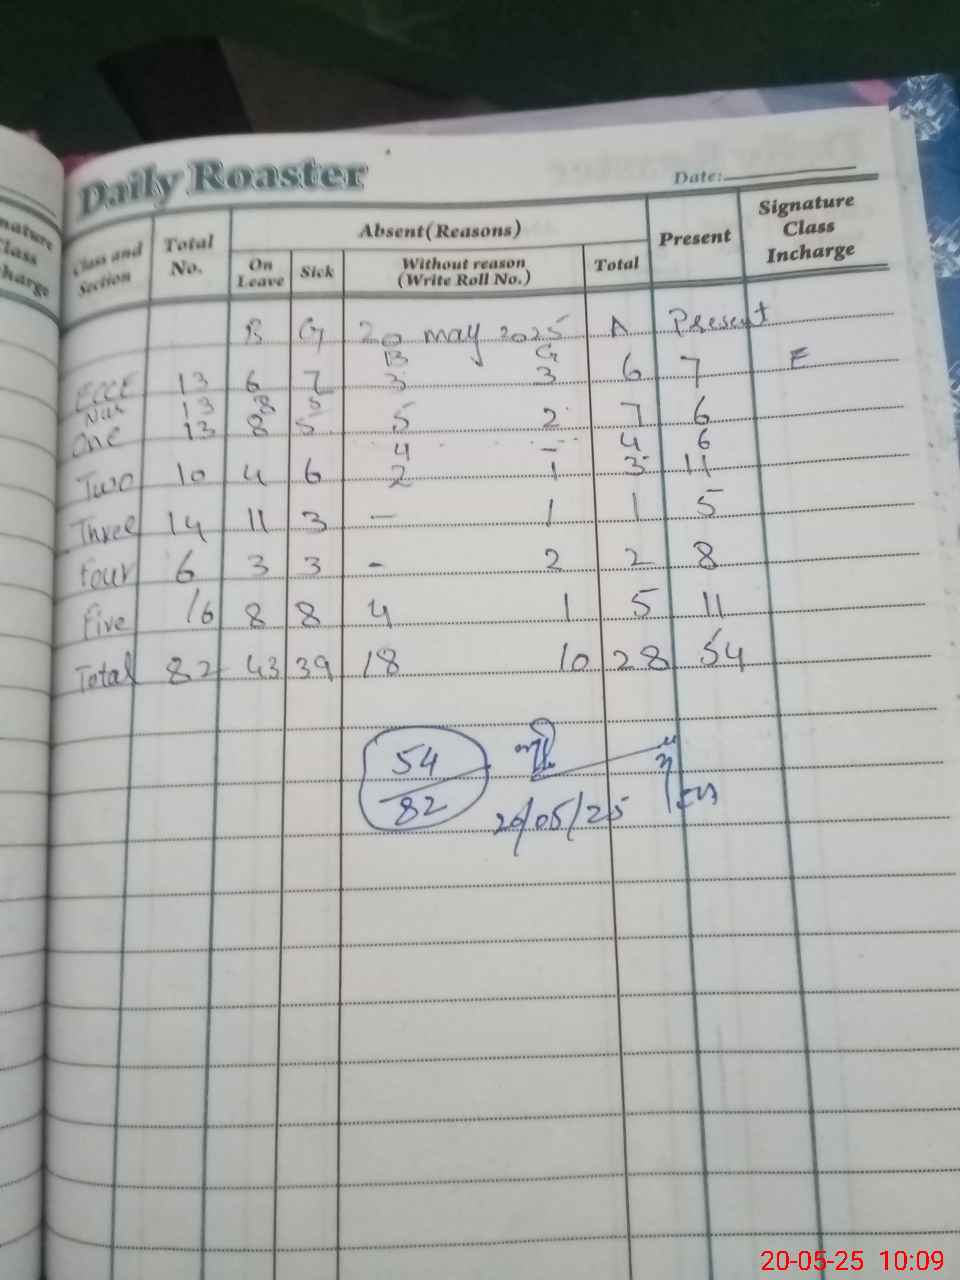 nature
Class
harge
Daily Roaster
Date:
Class and Section
Total No.
Absent(Reasons)
On Leave
Sick
Without reason (Write Roll No.)
Total
Present
Signature Class Incharge
B G 20 may 2025 A Present
B G
ECCE 13 6 7 3 3 6 7 E
Nur 13 8 5 5 2 7 6
One 13 8 5 4 - 4 6
Two 10 4 6 2 1 3 11
Three 14 11 3 - 1 1 5
Four 6 3 3 - 2 2 8
Five 16 8 8 4 1 5 11
Total 82 43 39 18 10 28 54
54
82
20/05/25
20-05-25 10:09